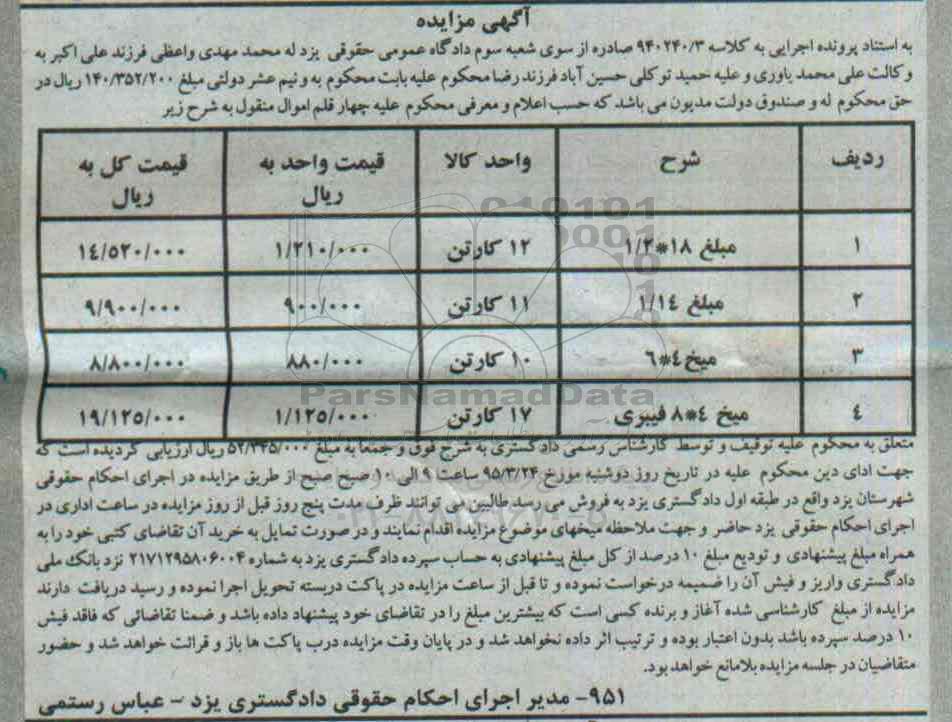 آگهی مزایده
به استناد پرونده اجرایی به کلاسه ۹۴۰۲۴۰/۳ صادره از سوی شعبه سوم دادگاه عمومی حقوقی یزد له محمد مهدی واعظی فرزند علی اکبر به
وکالت علی محمد یاوری و علیه حمید توکلی حسین آباد فرزند رضا محکوم علیه بابت محکوم به و نیم عشر دولتی مبلغ ۱۴۰/۳۵۲/۲۰۰ ریال در
حق محکوم له و صندوق دولت مدیون می باشد که حسب اعلام و معرفی محکوم علیه چهار قلم اموال منقول به شرح زیر
ردیف شرح واحد کالا قیمت واحد به ریال قیمت کل به ریال
۱ مبلغ ۱۸*۱/۲ ۱۲ کارتن ۱/۲۱۰/۰۰۰ ۱۴/۵۲۰/۰۰۰
۲ مبلغ ۱/۱۴ ۱۱ کارتن ۹۰۰/۰۰۰ ۹/۹۰۰/۰۰۰
۳ میخ ۴*۶ ۱۰ کارتن ۸۸۰/۰۰۰ ۸/۸۰۰/۰۰۰
۴ میخ ۴*۸ فیبری ۱۷ کارتن ۱/۱۲۵/۰۰۰ ۱۹/۱۲۵/۰۰۰
متعلق به محکوم علیه توقیف و توسط کارشناس رسمی دادگستری به شرح فوق و جمعا به مبلغ ۵۲/۳۴۵/۰۰۰ ریال ارزیابی گردیده است که
جهت ادای دین محکوم علیه در تاریخ روز دوشنبه مورخ ۹۵/۳/۲۴ ساعت ۹ الی ۱۰ صبح صبح از طریق مزایده در اجرای احکام حقوقی
شهرستان یزد واقع در طبقه اول دادگستری یزد به فروش می رسد طالبین می توانند ظرف مدت پنج روز قبل از روز مزایده در ساعت اداری در
اجرای احکام حقوقی یزد حاضر و جهت ملاحظه میخهای موضوع مزایده اقدام نمایند و در صورت تمایل به خرید آن تقاضای کتبی خود را به
همراه مبلغ پیشنهادی و تودیع مبلغ ۱۰ درصد از کل مبلغ پیشنهادی به حساب سپرده دادگستری یزد به شماره ۲۱۷۱۲۹۵۸۰۶۰۰۴ نزد بانک ملی
دادگستری واریز و فیش آن را ضمیمه درخواست نموده و تا قبل از ساعت مزایده در پاکت دربسته تحویل اجرا نموده و رسید دریافت دارند
مزایده از مبلغ کارشناسی شده آغاز و برنده کسی است که بیشترین مبلغ را در تقاضای خود پیشنهاد داده باشد و ضمنا تقاضائی که فاقد فیش
۱۰ درصد سپرده باشد بدون اعتبار بوده و ترتیب اثر داده نخواهد شد و در پایان وقت مزایده درب پاکت ها باز و قرائت خواهد شد و حضور
متقاضیان در جلسه مزایده بلامانع خواهد بود.
۹۵۱- مدیر اجرای احکام حقوقی دادگستری یزد - عباس رستمی
ParsNamadData